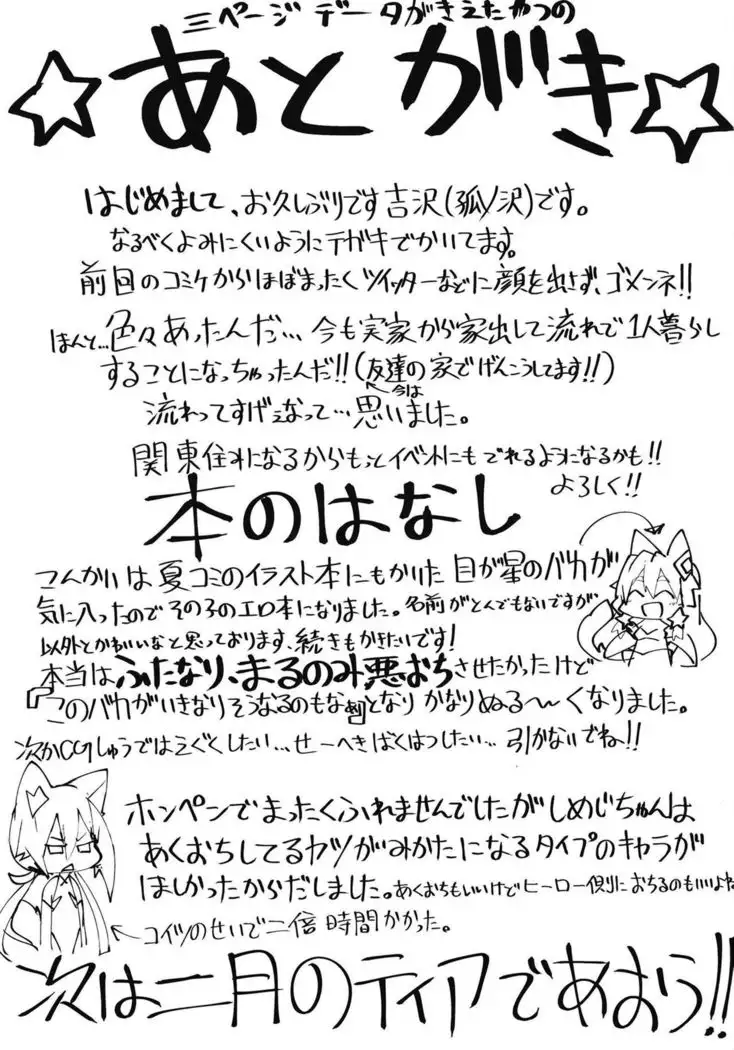 三ページデータがきえたやつの
☆あとがき☆
はじめまして、お久しぶりです吉沢(孤ノ沢)です。
なるべくよみにくいようにテガキでかいてます。
前回のコミケからほぼまったくツイッターなどに顔を出さず、ゴメンネ!!
ほんと…色々あったんだ…今も実家から家出して流れで1人暮らし
することになっちゃったんだ!!(友達の家でげんこうしてます!!)
今は
流れってすげぇなって…思いました。
関東住みになるからもっとイベントにもでれるようになるかも!!
よろしく!!
本のはなし
こんかいは夏コミのイラスト本にもかいた目が星のバカが
気に入ったのでその子のエロ本になりました。名前がとんでもないですが
以外とかわいいなと思っております、続きもかきたいです!
本当はふたなり、まるのみ悪おちさせたかったけど
「このバカがいきなりそうなるのもなぁ」となりかなりぬる〜くなりました。
次かCGしゅうではえぐくしたい…せーへきばくはつしたい…引かないでね!!
ホンペンでまったくふれませんでしたがしめじちゃんは
あくおちしてるヤツがみかたになるタイプのキャラが
ほしかったからだしました。あくおちもいいけどヒーロー側におちるのもいいよね
←コイツのせいで二倍時間かかった。
次は二月のティアであおう!!